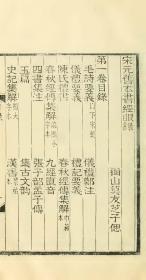 宋元舊本書經眼錄
獨山莫友芝子偲
第一卷目錄
毛詩要義 以下宋本 儀禮鄭注
儀禮要義 禮記要義
陳氏禮書 春秋經傳集解
春秋經傳集解 九經直音
四書集注 孟子傳
玉篇 集古文韻
史記集解 漢書